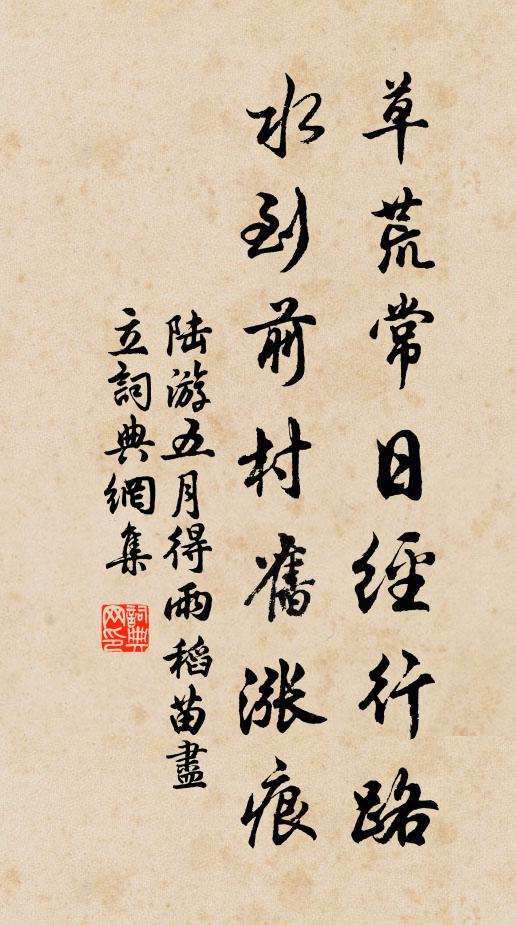 草荒常日經行路
水到前村舊漲痕
陆游五月得雨稻苗盡
立詞典網集
詞典網印